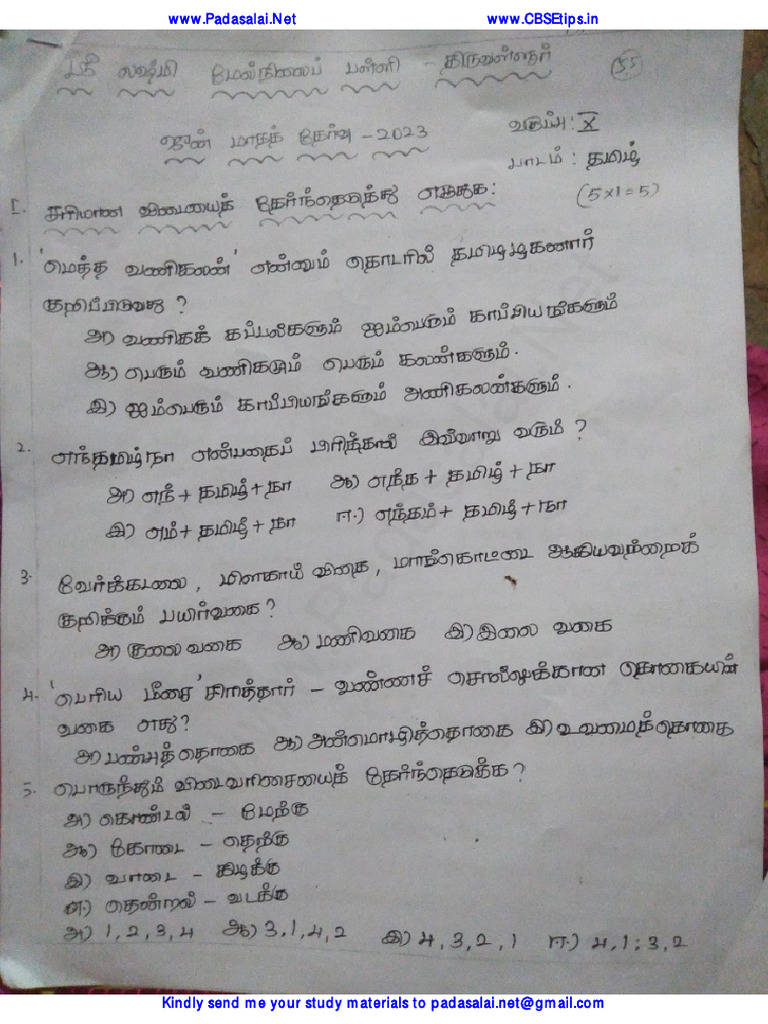 www.Padasalai.Net www.CBSEtips.in
ஸ்ரீ லஷ்மி மேல்நிலைப் பள்ளி - திருவள்ளூர்
ஜுன் மாதத் தேர்வு - 2023 வகுப்பு : X
பாடம் : தமிழ்
I. சரியான விடையைத் தேர்ந்தெடுத்து எழுதுக: (5x1=5)
1. 'மெத்த வணிகலன்' என்னும் தொடரில் தமிழழகனார்
குறிப்பிடுவது ?
அ) வணிகக் கப்பல்களும் ஐம்பெரும் காப்பியங்களும்
ஆ) பெரும் வணிகமும் பெரும் கலன்களும்.
இ) ஐம்பெரும் காப்பியங்களும் அணிகலன்களும்.
2. எந்தமிழ்நா என்பதைப் பிரித்தால் இவ்வாறு வரும் ?
அ) எந் + தமிழ் + நா ஆ) எந்த + தமிழ் + நா
இ) எம் + தமிழ் + நா ஈ.) எந்தம் + தமிழ் + நா
3. வேர்க்கடலை, மிளகாய் விதை, மாங்கொட்டை ஆகியவற்றைக்
குறிக்கும் பயிர்வகை?
அ) குலை வகை ஆ) மணிவகை இ) இலை வகை
4. 'பெரிய மீசை' சிரித்தார் - வண்ணச் சொல்லுக்கான தொகையின்
வகை எது?
அ) பண்புத்தொகை ஆ) அன்மொழித்தொகை இ) உவமைத்தொகை
5. பொருந்தும் விடைவரிசையைத் தேர்ந்தெடுக்க ?
அ) கொண்டல் - மேற்கு
ஆ) கோடை - தெற்கு
இ) வாடை - கிழக்கு
ஈ.) தென்றல் - வடக்கு
அ) 1, 2, 3, 4 ஆ) 3, 1, 4, 2 இ) 4, 3, 2, 1 ஈ.) 4, 1, 3, 2
Kindly send me your study materials to padasalai.net@gmail.com